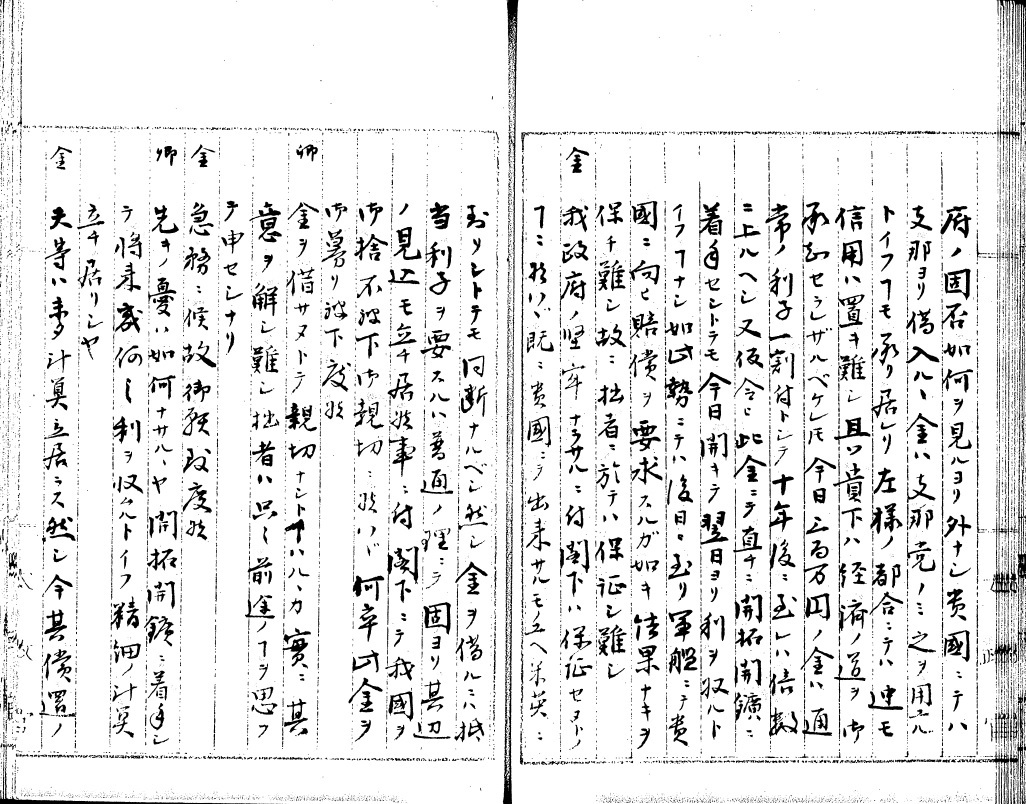 府ノ固否如何ヲ見ルヨリ外ナシ貴國ニテハ
支那ヨリ借入ルヽ金ハ支那党ノミ之ヲ用ユル
トイフヿモ承リ居レリ左様ノ都合ニテハ迚モ
信用ハ置キ難シ且ツ貴下ハ経済ノ道ヲ御
承知セラレザルベケレ𪜈今日三百万円ノ金ハ通
常ノ利子一割付トシテ十年後ニ至レハ倍数
ニ上ルヘシ又仮令ヒ此金ニテ直チニ開拓開鑛ニ
着手セントテモ今日開キテ翌日ヨリ利ヲ収ルト
イフヿナシ如此勢ニテハ後日ニ至リ軍艦ニテ貴
國ニ向ヒ賠償ヲ要求スルガ如キ結果ナキヲ
保チ難シ故ニ拙者ニ於テハ保証シ難シ
金 我政府ノ堅牢ナラサルニ付閣下ハ保証セヌトノ
ヿニ候ハヾ既ニ貴國ニテ出来サルモノヘ米英ニ
到リシトテモ同断ナルベシ然シ金ヲ借ルニハ抵
当利子ヲ要スルハ普通ノ理ニテ固ヨリ其辺
ノ見込モ立チ居候事ニ付閣下ニテ我國ヲ
御捨不被下御親切ニ候ハヾ何卒此金ヲ
御募リ被下度候
卿 金ヲ借サヌトテ親切ナシトイハルヽカ實ニ其
意ヲ解シ難シ拙者ハ只々前途ノヿヲ思フ
テ申セシナリ
金 急務ニ候故御頼致度候
卿 先キノ憂ハ如何ナサルヽヤ開拓開鑛ニ着手シ
テ将来幾何之利ヲ収ムルトイフ精細ノ計算
立チ居リシヤ
金 夫等ハ未タ計算立居ラス然シ今其償還ノ